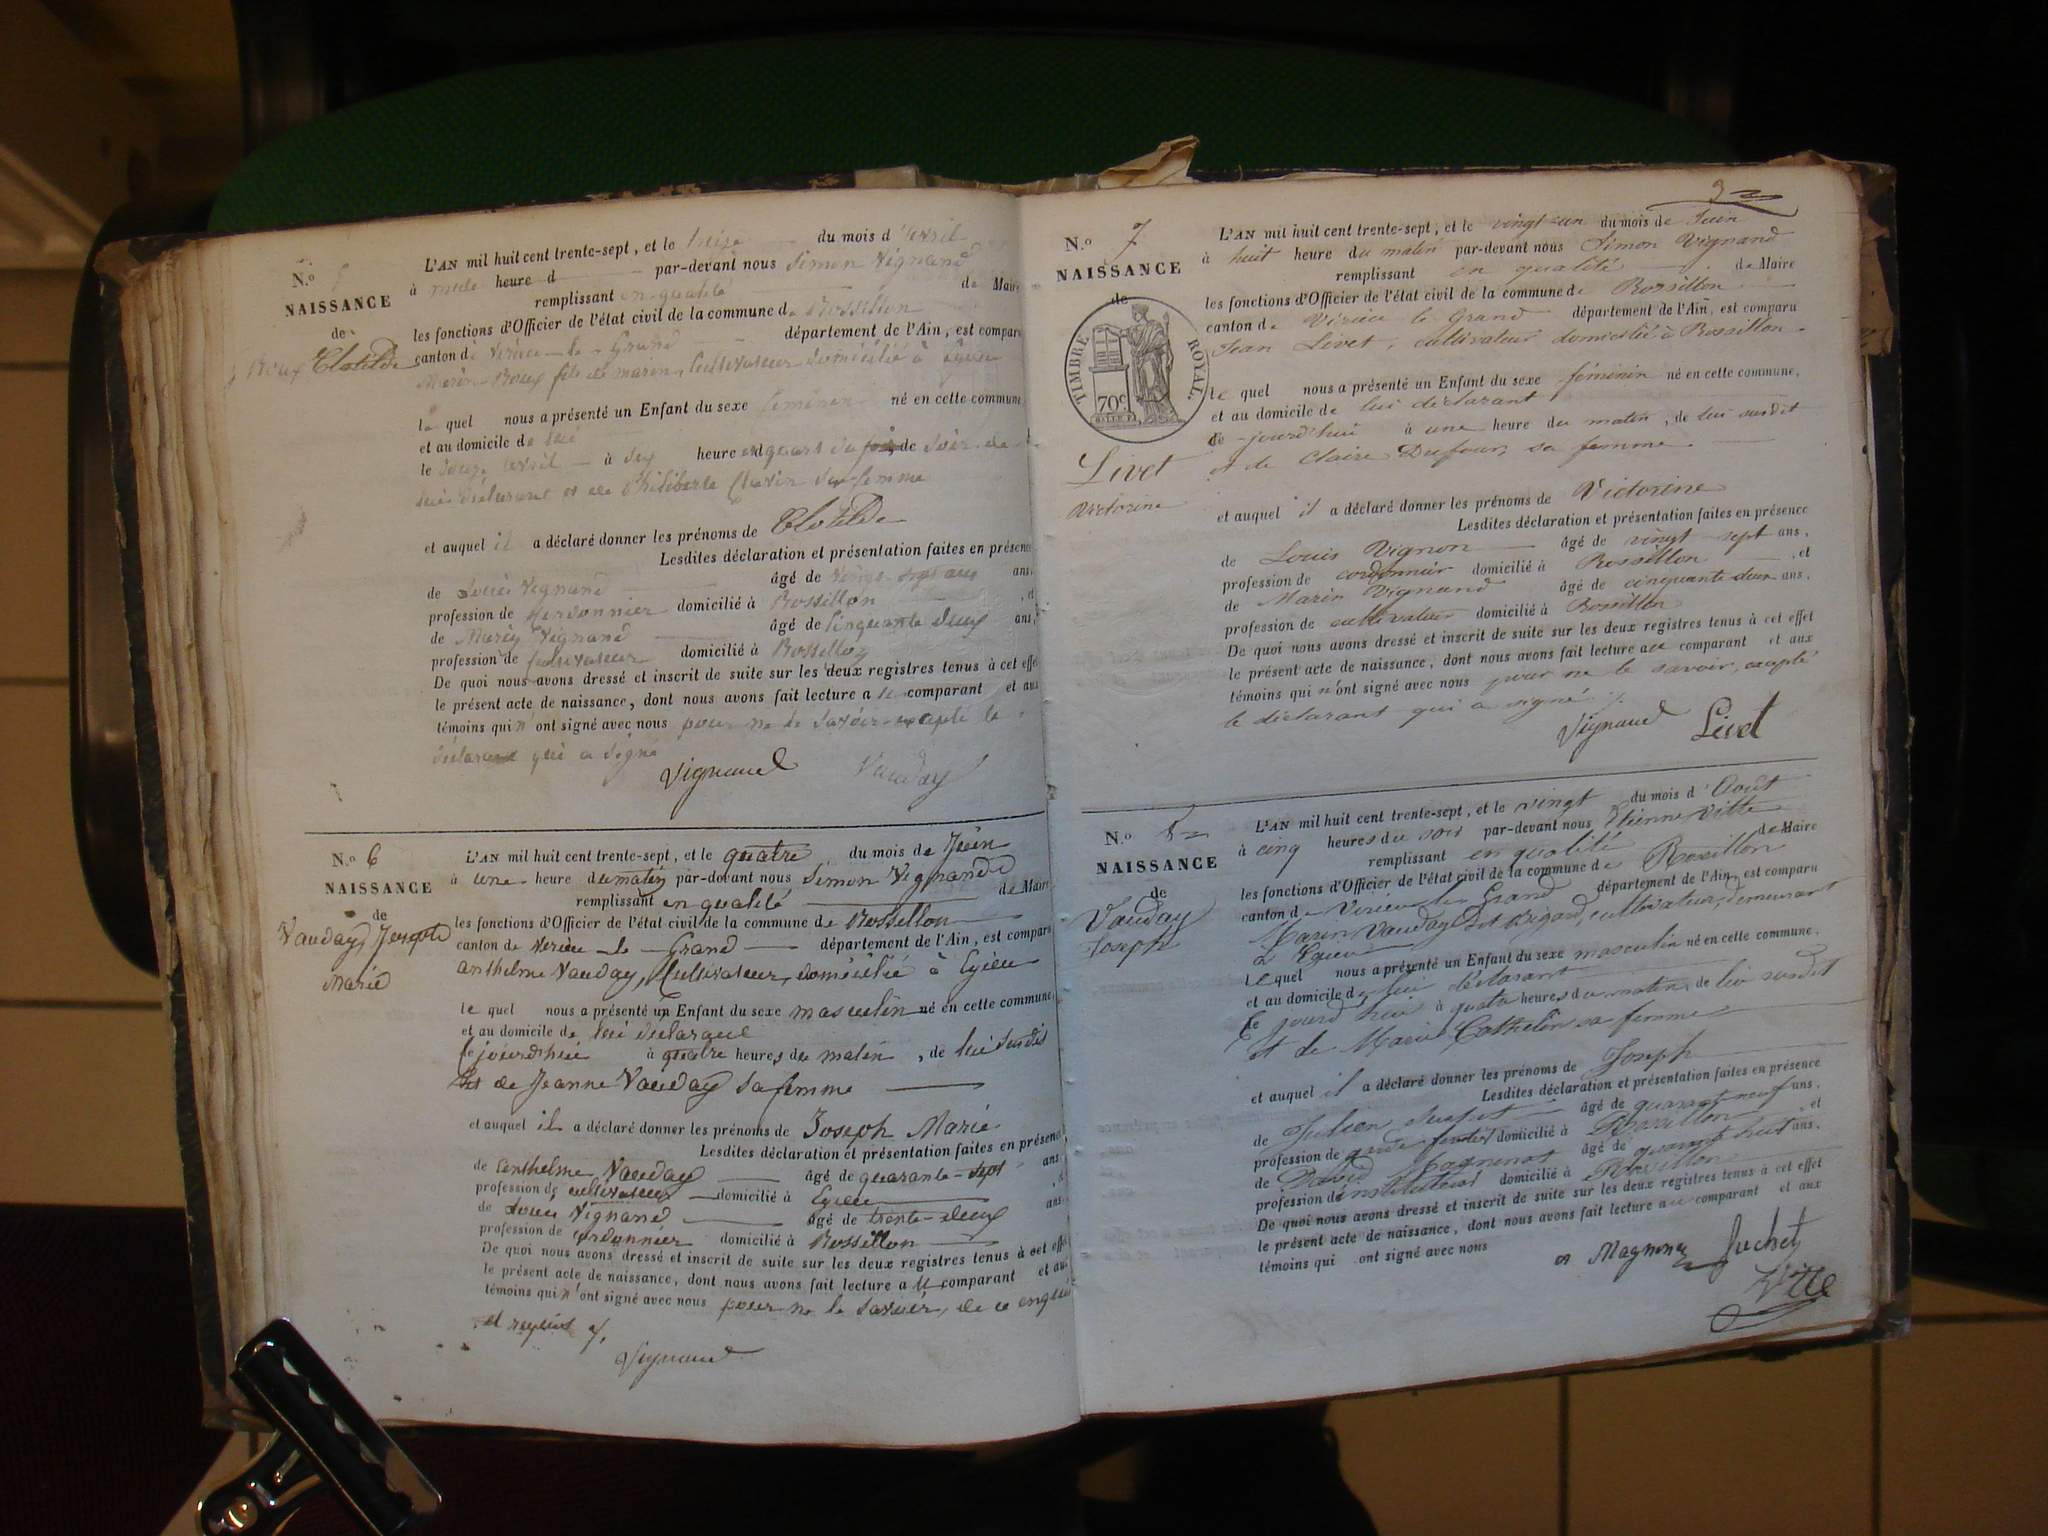 N.o 5
NAISSANCE
de
Roux Clotilde
L'AN mil huit cent trente-sept, et le treize du mois d'avril
à heure d par-devant nous Simon Vignand
remplissant en qualité de Maire
les fonctions d'Officier de l'état civil de la commune de Rossillon
canton de Virieu-le-Grand département de l'Ain, est comparu
Marin Roux fils de marin, Cultivateur domicilié à Egieu
le quel nous a présenté un Enfant du sexe féminin né en cette commune,
et au domicile de lui
le avril à heure quart du de soir de
lui déclarant et de Philiberte sa femme
et auquel il a déclaré donner les prénoms de Clotilde
Lesdites déclaration et présentation faites en présence
de Louis Vignand âgé de ans.
profession de Cordonnier domicilié à Rossillon , et
de Marin Vignand âgé de Cinquante deux ans,
profession de Cultivateur domicilié à Rossillon
De quoi nous avons dressé et inscrit de suite sur les deux registres tenus à cet effet
le présent acte de naissance, dont nous avons fait lecture a le comparant et aux
témoins qui n'ont signé avec nous pour ne le savoir excepté le
déclarant qui a signé
Vignand Vauday
N.o 6
NAISSANCE
de
Vauday, Joseph
Marie
L'AN mil huit cent trente-sept, et le quatre du mois de Juin
à une heure du matin par-devant nous Simon Vignand
remplissant en qualité de Maire
les fonctions d'Officier de l'état civil de la commune de Rossillon
canton de Virieu-le-Grand département de l'Ain, est comparu
anthelme Vauday, Cultivateur, domicilié à Egieu
le quel nous a présenté un Enfant du sexe masculin né en cette commune,
et au domicile de lui déclarant
Cejourd'hui à quatre heures du matin, de lui susdit
et de Jeanne Vauday sa femme
et auquel il a déclaré donner les prénoms de Joseph Marie
Lesdites déclaration et présentation faites en présence
de anthelme Vauday âgé de quarante-sept ans
profession de cultivateur domicilié à Egieu
de Louis Vignand âgé de trente-deux ans
profession de Cordonnier domicilié à Rossillon
De quoi nous avons dressé et inscrit de suite sur les deux registres tenus à cet effet
le présent acte de naissance, dont nous avons fait lecture a le comparant et aux
témoins qui n'ont signé avec nous pour ne le savoir, de ce enquis
et requis
Vignand
N.o 7
NAISSANCE
de
TIMBRE ROYAL.
70c
Livet
Victorine
L'AN mil huit cent trente-sept, et le vingt-un du mois de Juin
à huit heure du matin par-devant nous Simon Vignand
remplissant en qualité de Maire
les fonctions d'Officier de l'état civil de la commune de Rossillon
canton de Virieu le Grand département de l'Ain, est comparu
Jean Livet, cultivateur domicilié à Rossillon
le quel nous a présenté un Enfant du sexe féminin né en cette commune,
et au domicile de lui déclarant
Ce-jourd'hui à une heure du matin, de lui susdit
et de Claire Dufour, sa femme
et auquel il a déclaré donner les prénoms de Victorine
Lesdites déclaration et présentation faites en présence
de Louis Vignon âgé de vingt-sept ans,
profession de cordonnier domicilié à Rossillon , et
de Marin Vignand âgé de cinquante deux ans,
profession de cultivateur domicilié à Rossillon
De quoi nous avons dressé et inscrit de suite sur les deux registres tenus à cet effet
le présent acte de naissance, dont nous avons fait lecture au comparant et aux
témoins qui n'ont signé avec nous pour ne le savoir, excepté
le déclarant qui a signé
Vignand Livet
N.o 8
NAISSANCE
de
Vauday
Joseph
L'AN mil huit cent trente-sept, et le vingt du mois d'Août
à cinq heures du soir par-devant nous Etienne Vitte
remplissant en qualité de Maire
les fonctions d'Officier de l'état civil de la commune de Rossillon
canton de Virieu le Grand département de l'Ain, est comparu
Marin Vauday dit Rigard, cultivateur, demeurant
à Egieu
le quel nous a présenté un Enfant du sexe masculin né en cette commune,
et au domicile de lui déclarant
Ce jourd'hui à quatre heures du matin, de lui susdit
et de Marie Cathelin sa femme
et auquel il a déclaré donner les prénoms de Joseph
Lesdites déclaration et présentation faites en présence
de Julien Juchet âgé de quarante neuf ans,
profession de garde forêts domicilié à Rossillon , et
de David Magninat âgé de quarante huit ans,
profession d'instituteur domicilié à Rossillon
De quoi nous avons dressé et inscrit de suite sur les deux registres tenus à cet effet
le présent acte de naissance, dont nous avons fait lecture au comparant et aux
témoins qui ont signé avec nous
Juchet
Vitte